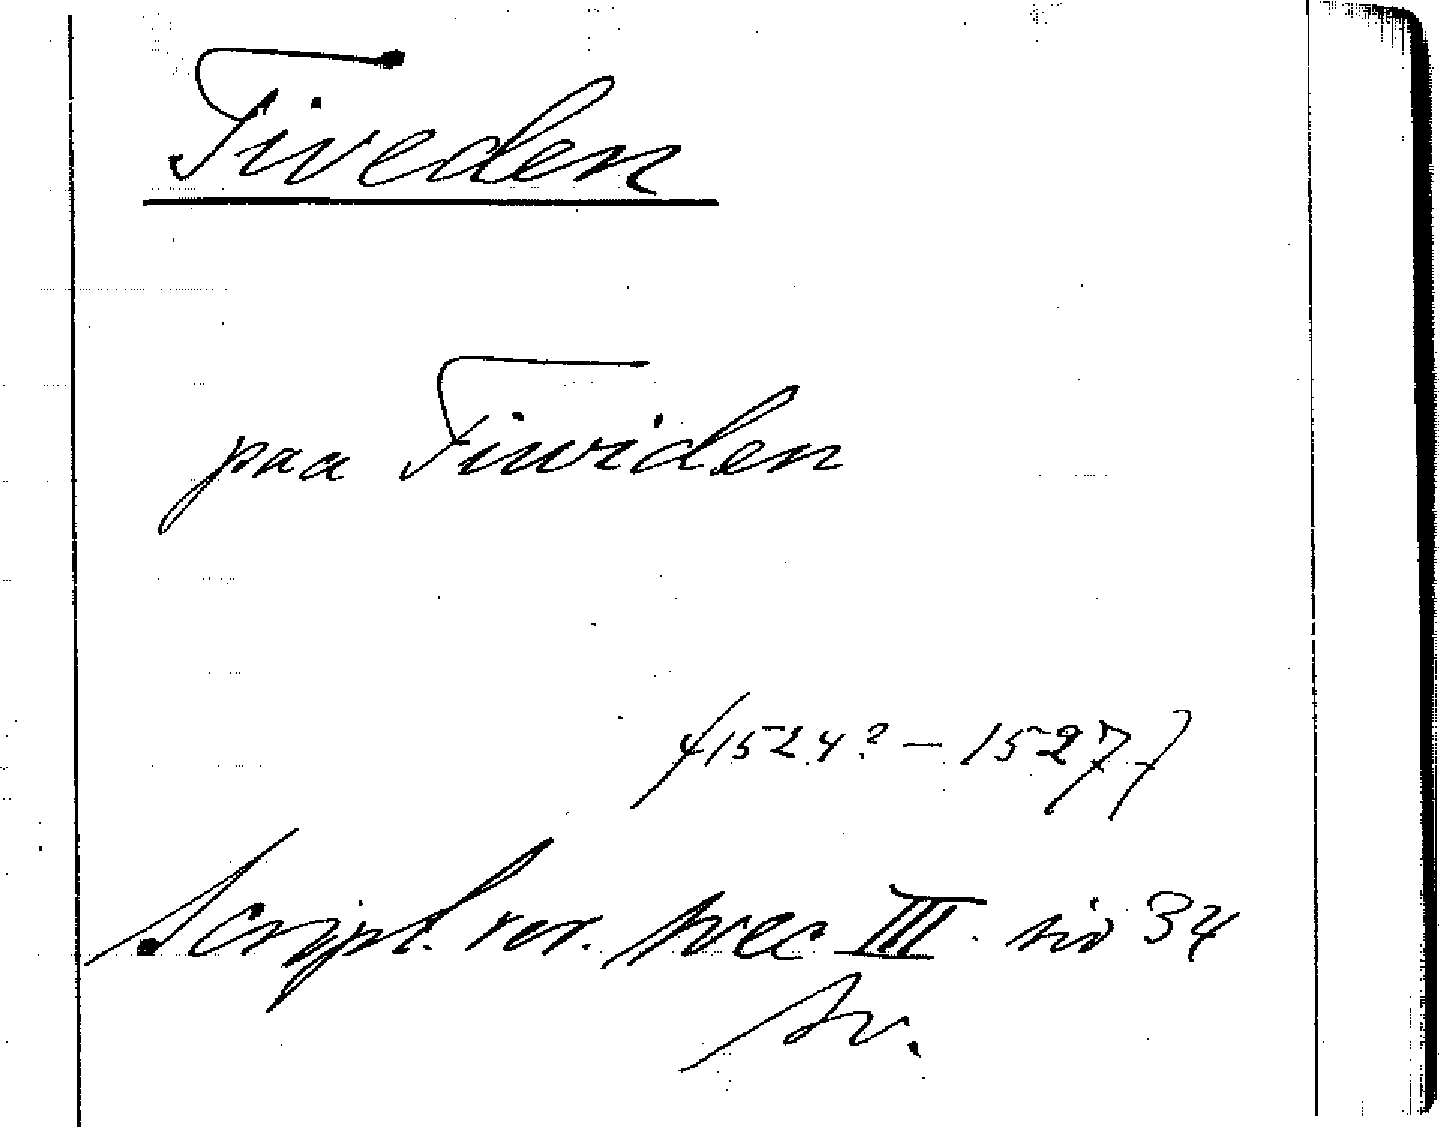 Tiveden
paa Tiwiden
(1524? – 1527)
Script. rer. svec III. sid 34
Sv.